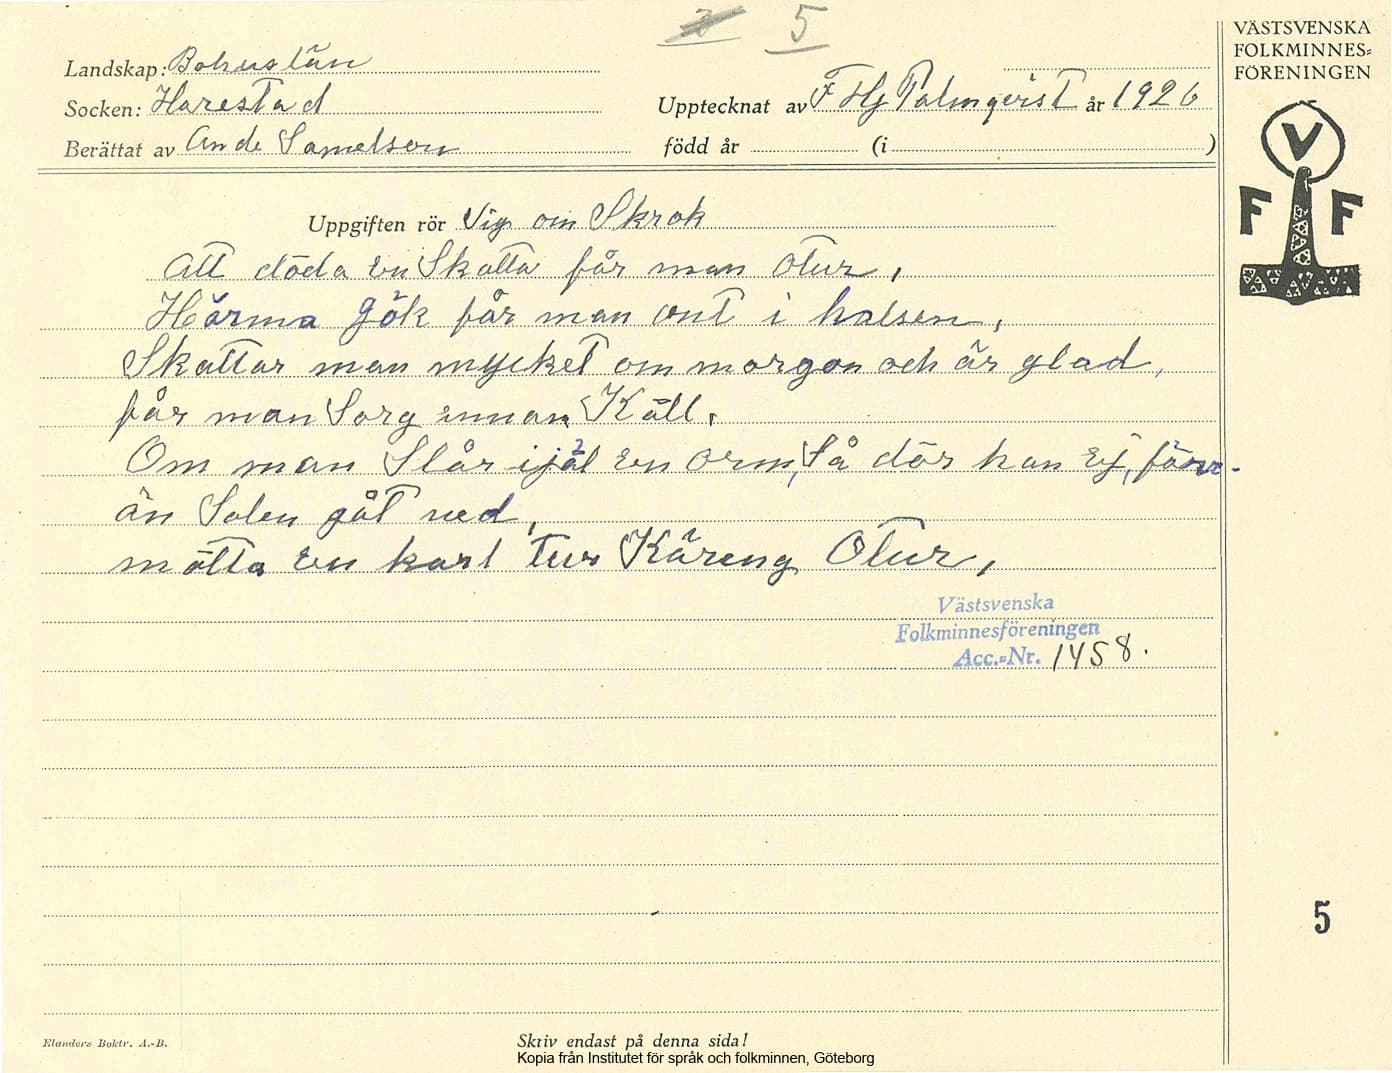 5
VÄSTSVENSKA
FOLKMINNES=
FÖRENINGEN
Landskap: Bohuslän
Socken: Harestad
Upptecknat av F Hj Palmqvist år 1926
Berättat av Ande Samelson
född år (i )
V
F F
Uppgiften rör Vig om Skrok
Att döda en Skatta får man otur,
Härma gök får man ont i halsen,
Skattar man mycket om morgon och är glad,
får man Sorg innan Käll.
Om man Slår ijäl en orm, Så dör han Ej, förr-
än Solen gåt ned,
mötta en karl tur Käreng Otur,
Västsvenska
Folkminnesföreningen
Acc.=Nr. 1458.
5
Elanders Boktr. A.-B.
Skriv endast på denna sida!
Kopia från Institutet för språk och folkminnen, Göteborg